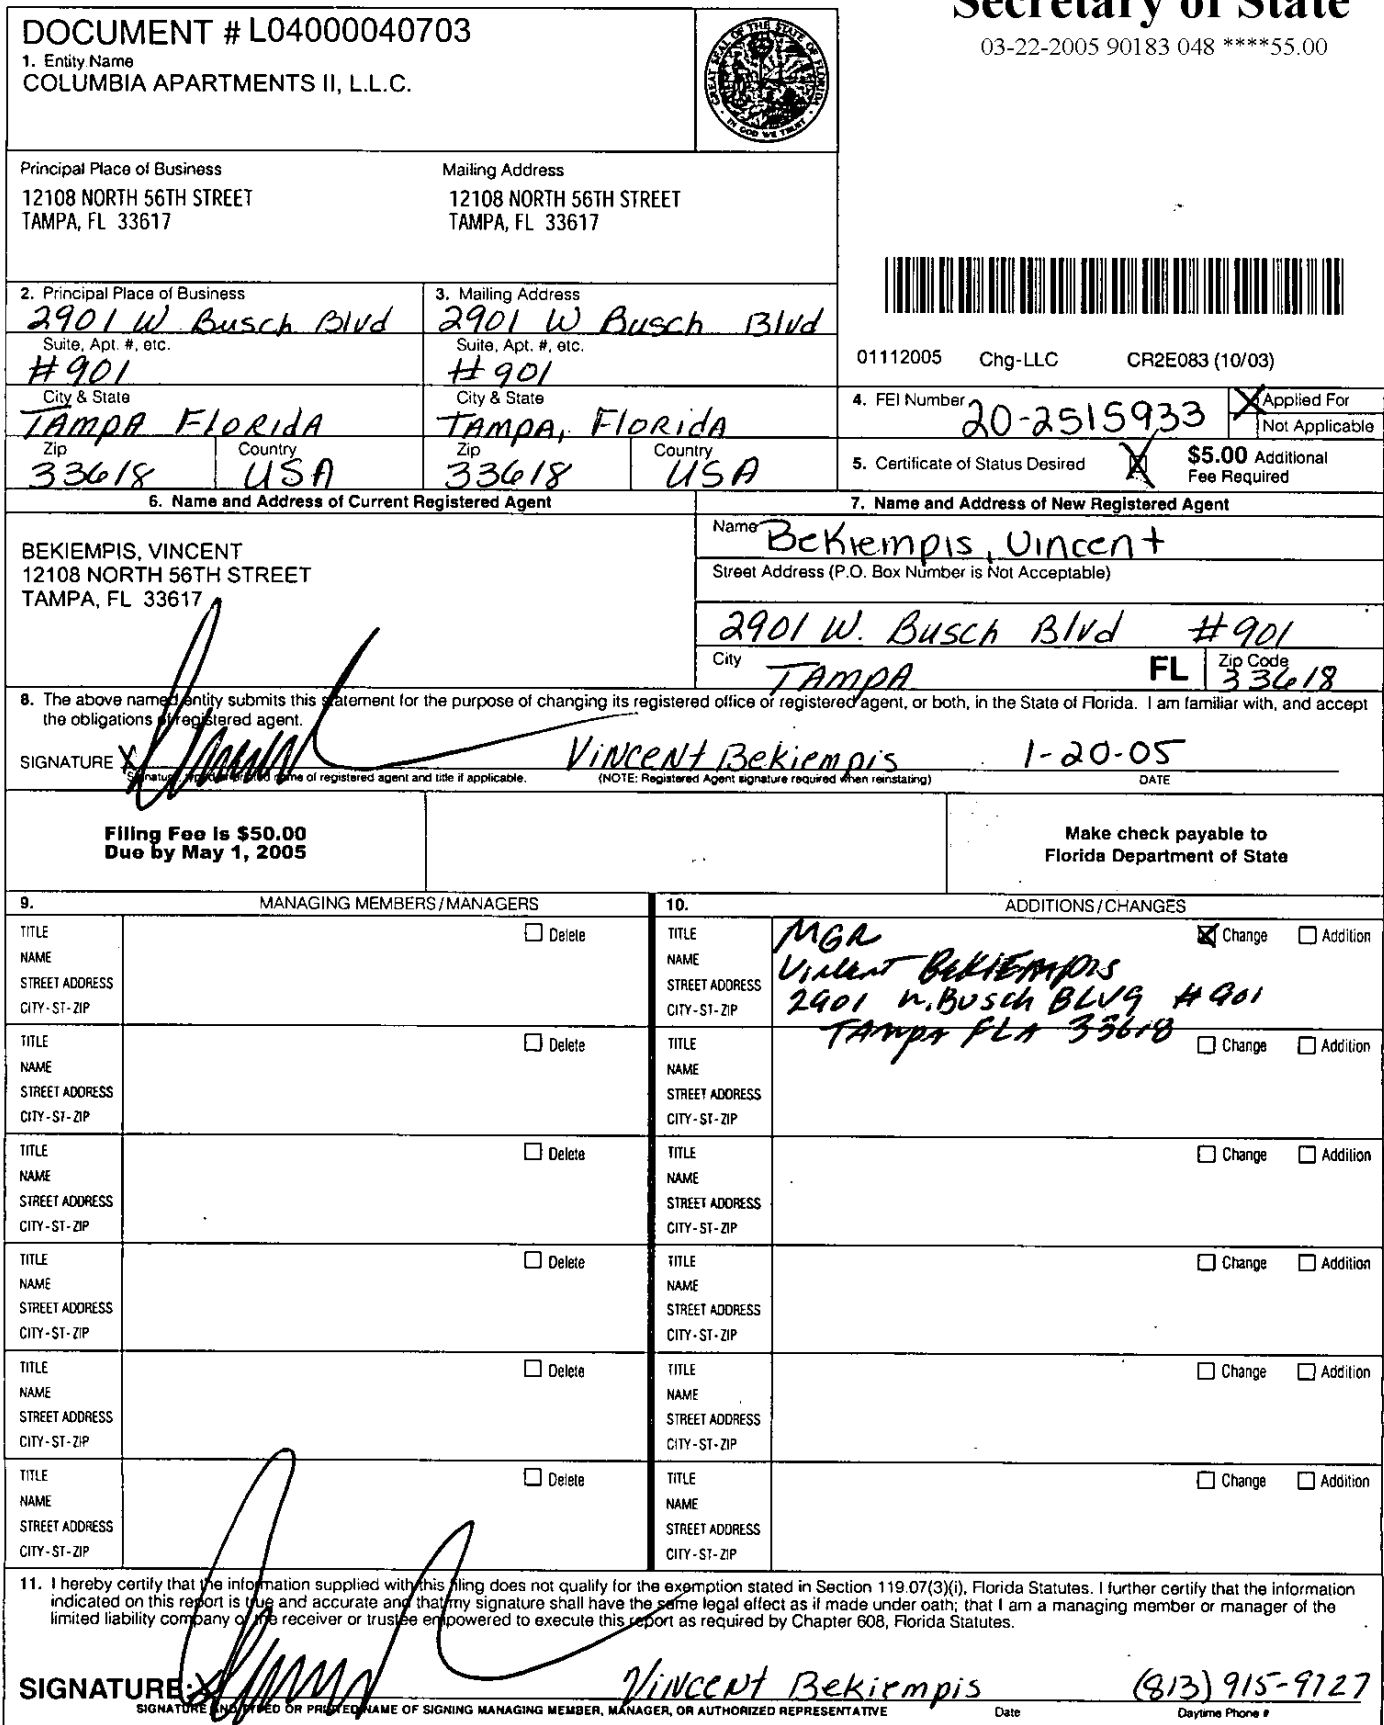 Secretary of State
03-22-2005 90183 048 ****55.00
DOCUMENT # L04000040703
1. Entity Name
COLUMBIA APARTMENTS II, L.L.C.
GREAT SEAL OF THE STATE OF FLORIDA
IN GOD WE TRUST
Principal Place of Business
12108 NORTH 56TH STREET
TAMPA, FL 33617
Mailing Address
12108 NORTH 56TH STREET
TAMPA, FL 33617
2. Principal Place of Business
2901 W Busch Blvd
Suite, Apt. #, etc.
#901
City & State
TAMPA FLORIDA
Zip
33618
Country
USA
3. Mailing Address
2901 W Busch Blvd
Suite, Apt. #, etc.
#901
City & State
TAMPA, FLORIDA
Zip
33618
Country
USA
01112005 Chg-LLC CR2E083 (10/03)
4. FEI Number
20-2515933
X Applied For
Not Applicable
5. Certificate of Status Desired X
$5.00 Additional
Fee Required
6. Name and Address of Current Registered Agent
BEKIEMPIS, VINCENT
12108 NORTH 56TH STREET
TAMPA, FL 33617
7. Name and Address of New Registered Agent
Name Bekiempis, Vincent
Street Address (P.O. Box Number is Not Acceptable)
2901 W. Busch Blvd #901
City TAMPA FL Zip Code 33618
8. The above named entity submits this statement for the purpose of changing its registered office or registered agent, or both, in the State of Florida. I am familiar with, and accept
the obligations of registered agent.
SIGNATURE X Vincent Bekiempis 1-20-05
Signature, typed or printed name of registered agent and title if applicable. (NOTE: Registered Agent signature required when reinstating) DATE
Filing Fee is $50.00
Due by May 1, 2005
Make check payable to
Florida Department of State
9. MANAGING MEMBERS/MANAGERS
TITLE Delete
NAME
STREET ADDRESS
CITY-ST-ZIP
TITLE Delete
NAME
STREET ADDRESS
CITY-ST-ZIP
TITLE Delete
NAME
STREET ADDRESS
CITY-ST-ZIP
TITLE Delete
NAME
STREET ADDRESS
CITY-ST-ZIP
TITLE Delete
NAME
STREET ADDRESS
CITY-ST-ZIP
TITLE Delete
NAME
STREET ADDRESS
CITY-ST-ZIP
10. ADDITIONS/CHANGES
TITLE MGR X Change Addition
NAME Vincent BEKIEMPIS
STREET ADDRESS 2901 W. Busch BLVD #901
CITY-ST-ZIP TAMPA FLA 33618
TITLE Change Addition
NAME
STREET ADDRESS
CITY-ST-ZIP
TITLE Change Addition
NAME
STREET ADDRESS
CITY-ST-ZIP
TITLE Change Addition
NAME
STREET ADDRESS
CITY-ST-ZIP
TITLE Change Addition
NAME
STREET ADDRESS
CITY-ST-ZIP
TITLE Change Addition
NAME
STREET ADDRESS
CITY-ST-ZIP
11. I hereby certify that the information supplied with this filing does not qualify for the exemption stated in Section 119.07(3)(i), Florida Statutes. I further certify that the information
indicated on this report is true and accurate and that my signature shall have the same legal effect as if made under oath; that I am a managing member or manager of the
limited liability company or the receiver or trustee empowered to execute this report as required by Chapter 608, Florida Statutes.
SIGNATURE: X Vincent Bekiempis (813) 915-9727
SIGNATURE AND TYPED OR PRINTED NAME OF SIGNING MANAGING MEMBER, MANAGER, OR AUTHORIZED REPRESENTATIVE Date Daytime Phone #